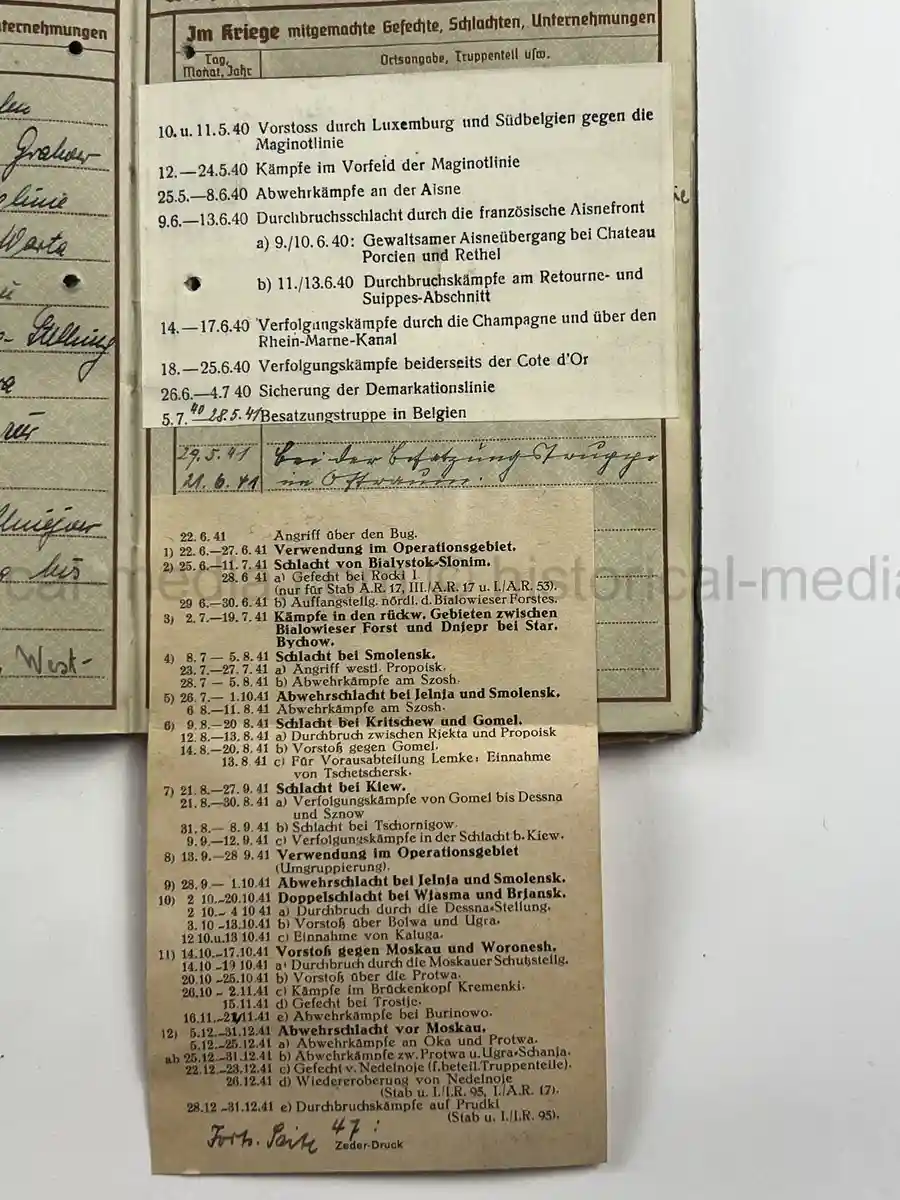 ternehmungen
Graben
linie
Warta
Stellung
bis
West-
Im Kriege mitgemachte Gefechte, Schlachten, Unternehmungen
Tag, Monat, Jahr
Ortsangabe, Truppenteil usw.
10. u. 11.5.40 Vorstoss durch Luxemburg und Südbelgien gegen die
Maginotlinie
12.—24.5.40 Kämpfe im Vorfeld der Maginotlinie
25.5.—8.6.40 Abwehrkämpfe an der Aisne
9.6.—13.6.40 Durchbruchsschlacht durch die französische Aisnefront
a) 9./10.6.40: Gewaltsamer Aisneübergang bei Chateau
Porcien und Rethel
b) 11./13.6.40 Durchbruchskämpfe am Retourne- und
Suippes-Abschnitt
14.—17.6.40 Verfolgungskämpfe durch die Champagne und über den
Rhein-Marne-Kanal
18.—25.6.40 Verfolgungskämpfe beiderseits der Cote d'Or
26.6.—4.7 40 Sicherung der Demarkationslinie
5.7. 40 — 28.5.41 Besatzungstruppe in Belgien
29.5.41 Bei der Besatzungstruppe
21.6.41 im Ostraum.
22.6.41 Angriff über den Bug.
1) 22.6.—27.6.41 Verwendung im Operationsgebiet.
2) 25.6.—11.7.41 Schlacht von Bialystok-Slonim.
28.6 41 a) Gefecht bei Rocki I
(nur für Stab A.R. 17, III./A.R. 17 u. I./A.R. 53).
29 6.—30.6.41 b) Auffangstellg. nördl. d. Bialowieser Forstes.
3) 2.7.—19.7.41 Kämpfe in den rückw. Gebieten zwischen
Bialowieser Forst und Dnjepr bei Star.
Bychow.
4) 8.7 — 5.8.41 Schlacht bei Smolensk.
23.7.—27.7.41 a) Angriff westl. Propoisk.
28.7 — 5.8.41 b) Abwehrkämpfe am Szosh.
5) 26.7.— 1.10.41 Abwehrschlacht bei Jelnja und Smolensk.
6 8.—11.8.41 Abwehrkämpfe am Szosh.
6) 9.8.—20 8.41 Schlacht bei Kritschew und Gomel.
12.8.—13.8.41 a) Durchbruch zwischen Rjekta und Propoisk
14.8.—20.8.41 b) Vorstoß gegen Gomel.
13.8 41 c) Für Vorausabteilung Lemke: Einnahme
von Tschetschersk.
7) 21.8.—27.9.41 Schlacht bei Kiew.
21.8.—30.8.41 a) Verfolgungskämpfe von Gomel bis Dessna
und Sznow
31.8.— 8.9.41 b) Schlacht bei Tschornigow.
9.9.—12.9.41 c) Verfolgungskämpfe in der Schlacht b. Kiew.
8) 13.9.—28 9.41 Verwendung im Operationsgebiet
(Umgruppierung).
9) 28.9.— 1.10.41 Abwehrschlacht bei Jelnja und Smolensk.
10) 2 10.–20.10.41 Doppelschlacht bei Wjasma und Brjansk.
2 10.– 4 10 41 a) Durchbruch durch die Dessna-Stellung.
3.10 –13.10.41 b) Vorstoß über Bolwa und Ugra.
12 10.u.13 10.41 c) Einnahme von Kaluga.
11) 14.10.–17.10.41 Vorstoß gegen Moskau und Woronesh.
14.10 –19 10.41 a) Durchbruch durch die Moskauer Schutzstellg.
20.10 –25.10.41 b) Vorstoß über die Protwa.
26.10 – 2.11.41 c) Kämpfe im Brückenkopf Kremenki.
15.11.41 d) Gefecht bei Trostje.
16.11.–21.11.41 e) Abwehrkämpfe bei Burinowo.
12) 5.12.–31.12.41 Abwehrschlacht vor Moskau.
5.12.–25.12.41 a) Abwehrkämpfe an Oka und Protwa.
ab 25.12.–31.12.41 b) Abwehrkämpfe zw. Protwa u. Ugra-Schanja.
22.12.–23.12.41 c) Gefecht v. Nedelnoje (f. beteil. Truppenteile).
26.12.41 d) Wiedereroberung von Nedelnoje
(Stab u. I./I.R. 95, I./A.R. 17).
28.12 –31.12.41 e) Durchbruchskämpfe auf Prudki
(Stab u. I./I.R. 95).
Forts. Seite 47:
Zeder-Druck
historical-media